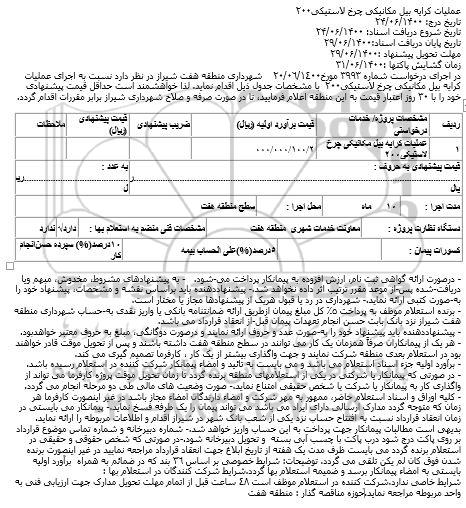 عملیات کرایه بیل مکانیکی چرخ لاستیکی۲۰۰
تاریخ درج: ۲۴/۰۶/۱۴۰۰
تاریخ شروع دریافت اسناد: ۲۴/۰۶/۱۴۰۰
تاریخ پایان دریافت اسناد: ۲۹/۰۶/۱۴۰۰
مهلت تحویل پیشنهاد : ۲۹/۰۶/۱۴۰۰
زمان گشایش پاکتها : ۳۱/۰۶/۱۴۰۰
در اجرای درخواست شماره ۳۹۹۳ مورخ۲۰/۰۶/۱۴۰۰ شهرداری منطقه هفت شیراز در نظر دارد نسبت به اجرای عملیات
کرایه بیل مکانیکی چرخ لاستیکی۲۰۰ با مشخصات جدول ذیل اقدام نماید. لذا خواهشمند است حداقل قیمت پیشنهادی
خود را با ۳۰ روز اعتبار قیمت به این منطقه اعلام فرمایید، تا در صورت صرفه و صلاح شهرداری شیراز برابر مقررات اقدام گردد.
ردیف مشخصات پروژه/ خدمات درخواستی قیمت برآورد اولیه (ریال) ضریب پیشنهادی قیمت پیشنهادی (ریال) ملاحظات
۱ عملیات کرایه بیل مکانیکی چرخ لاستیکی۲۰۰ ۰۰۰/۰۰۰/۱۰۰/۲
به حروف : به عدد :
ریال
مدت اجرا : ۱۰ ماه محل اجرا : سطح منطقه هفت
دستگاه نظارت پروژه : معاونت خدمات شهری منطقه هفت مشخصات فنی منضم به استعلام بها : دارد/ ندارد
کسورات پیمان : ۵درصد(%)علی الحساب بیمه ۱۰درصد(%) سپرده حسن انجام کار
- درصورت ارائه گواهی ثبت نام، ارزش افزوده به پیمانکار پرداخت می-شود. - به پیشنهادهای مشروط، مخدوش، مبهم ویا
دریافت-شده پس-از موعد مقرر ترتیب اثر داده نخواهد شد.- پیشنهاددهنده باید براساس نقشه و مشخصات، پیشنهاد خود را
به-صورت کتبی ارائه نماید.- شهرداری در رد یا قبول هریک از پیشنهادها مجاز یا مختار است.
- برنده استعلام موظف به پرداخت ۵% کل مبلغ پیمان ازطریق ارائه ضمانتنامه بانکی یا واریز نقدی به-حساب شهرداری منطقه
هفت شیراز نزد بانک بابت حسن انجام تعهدات پیمان قبل-از انعقاد قرارداد می باشد.
- پیشنهاددهنده باید پیشنهاد خود را به-صورت عدد و حروف ارائه نمایند و درصورت دوگانگی، مبلغ به حروف معتبر خواهدبود.
- هر یک از پیمانکاران صرفاً همزمان یک کار می توانند در سطح منطقه هفت داشته باشند و پس از تحویل موقت قادر خواهند
بود در استعلام بعدی منطقه شرکت نمایند و جهت واگذاری بیشتر از یک کار ، کارفرما تصمیم گیری می کند.
- برآورد اولیه جزء اسناد استعلام می باشد و می بایست به تائید و امضاء پیمانکار شرکت کننده در استعلام رسیده باشد.
- در صورتی که پیمانکار یا شرکتی در یکی از استعلامهای منطقه برنده گردد تا زمان تحویل موقت پروژه کارفرما می تواند از
واگذاری کار به پیمانکار یا شرکت یا شخص حقیقی امتناع نماید.- صورت وضعیت های مالی طی دو مرحله انجام می گردد.
- کلیه اوراق و اسناد استعلام حاضر، ممهور به مهر شرکت و امضاء دارندگان امضاء مجاز باشد در غیر اینصورت کارفرما هر
زمان که متوجه گردد مدارک ارسالی دارای ایراد می باشد می تواند پیمان را یک طرفه فسخ نماید.- پیمانکار می بایستی در
زمان انعقاد قرارداد نسبت به افتتاح حساب نزد یکی از شعب بانک شهر در شیراز اقدام و اطلاعات مربوطه را ارائه نماید.
بدیهی است مطالبات پیمانکار جهت پرداخت به این حساب واریز خواهد شد.- شماره دبیرخانه و شماره تماس موضوع قرارداد
بر روی پاکت درج شود درب پاکت با چسب آبی بسته و تحویل دبیرخانه شود.-در صورتی که شخص حقوقی و حقیقی در
استعلام برنده گردد می بایست ظرف مدت یک هفته از تاریخ ابلاغ جهت انعقاد قرارداد مراجعه نمایید در غیر اینصورت برنده
شدن فوق کان لم یکن تلقی می گردد. توضیحات: شرایط خصوصی بر اساس ۳۹ بند که در ضمائم به همراه برآورد اولیه
بایستی به امضاء پیمانکار برسد و ضمیمه استعلام بها گردد.شرایط شرکت کنندگان در استعلام بها :
شرایط خاصی ندارد.شرکت کننده در استعلام موظف است ۴۸ ساعت قبل از اتمام مهلت تحویل مدارک جهت ارزیابی فنی به
واحد مربوطه مراجعه نماید.|حوزه مناقصه گذار : منطقه هفت